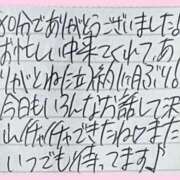 90分でありがとうございました!
お忙しい中来てくれて、あ
りがとね
ヶ月ぶり!
今日もいろんなお話して沢
山イチャイチャできたねまた
いつでも待ってます♪